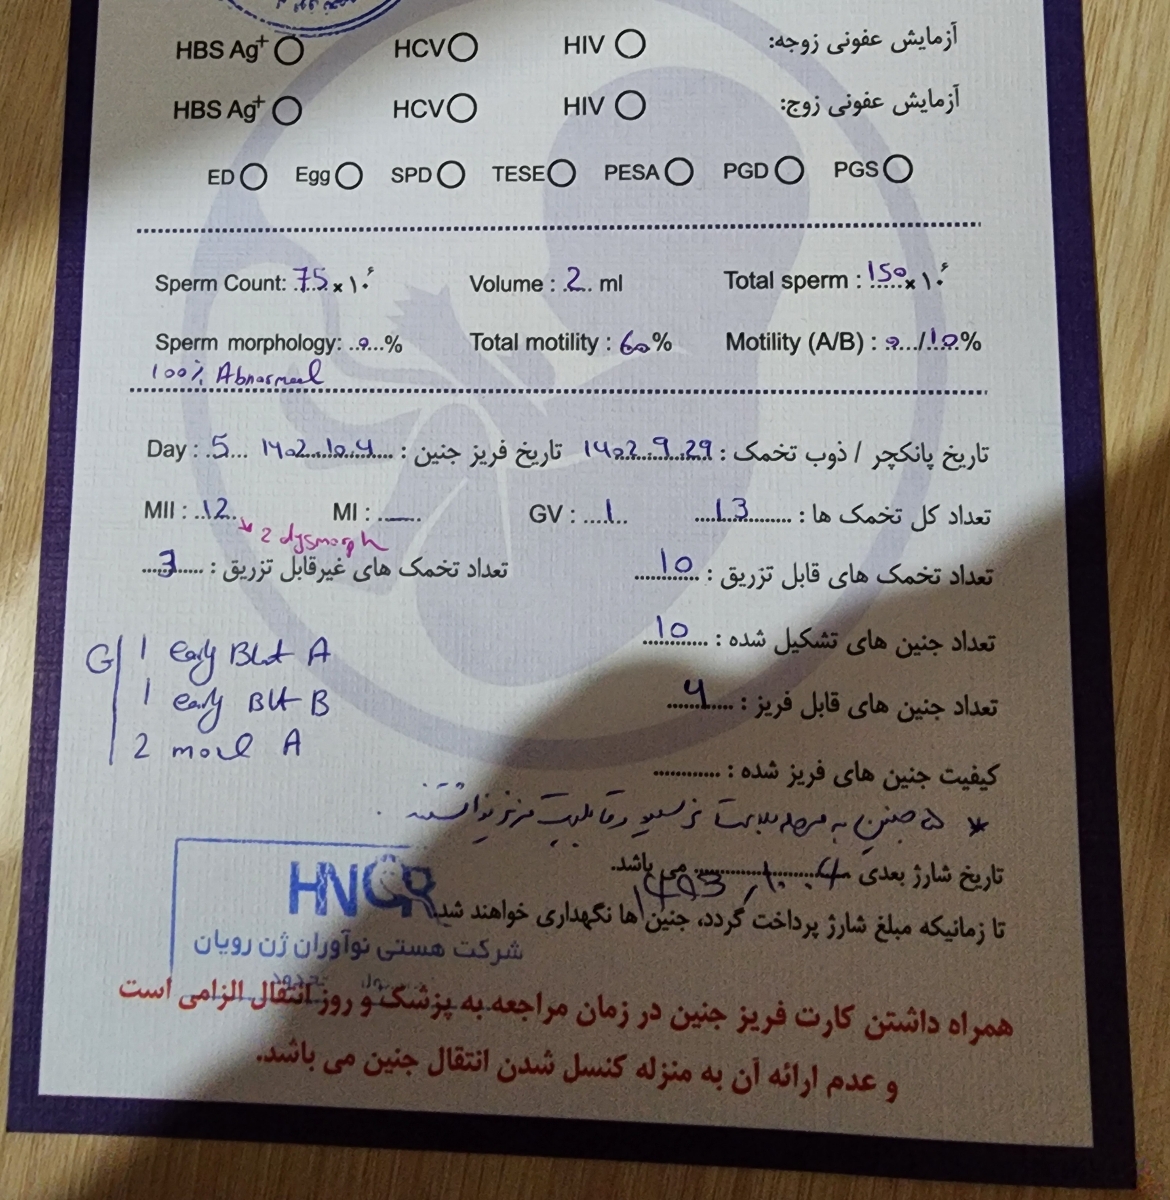 آزمایش عفونی زوجه: HIV HCV HBS Ag+
آزمایش عفونی زوج: HIV HCV HBS Ag+
ED Egg SPD TESE PESA PGD PGS
Sperm Count: 75 × ۱۰⁶ Volume : 2 ml Total sperm : 150 × ۱۰⁶
Sperm morphology: 0 % Total motility : 60 % Motility (A/B) : 0 / 10 %
100% Abnormal
تاریخ پانکچر / ذوب تخمک : 1402.9.29 تاریخ فریز جنین : 1402.10.4 Day : 5
تعداد کل تخمک ها : 13 GV : 1 MI : — MII : 12
2 dysmorph
تعداد تخمک های قابل تزریق : 10 تعداد تخمک های غیرقابل تزریق : 3
تعداد جنین های تشکیل شده : 10
G 1 early Blst A
1 early Blst B
2 morl A
تعداد جنین های قابل فریز : 4
کیفیت جنین های فریز شده :
* ۵ جنین به مرحله بلاست نرسید و قابلیت فریز نداشتند .
تاریخ شارژ بعدی 1403.10.4 می باشد.
تا زمانیکه مبلغ شارژ پرداخت گردد، جنین ها نگهداری خواهند شد
HNGR
شرکت هستی نوآوران ژن رویان
همراه داشتن کارت فریز جنین در زمان مراجعه به پزشک و روز انتقال الزامی است
و عدم ارائه آن به منزله کنسل شدن انتقال جنین می باشد.